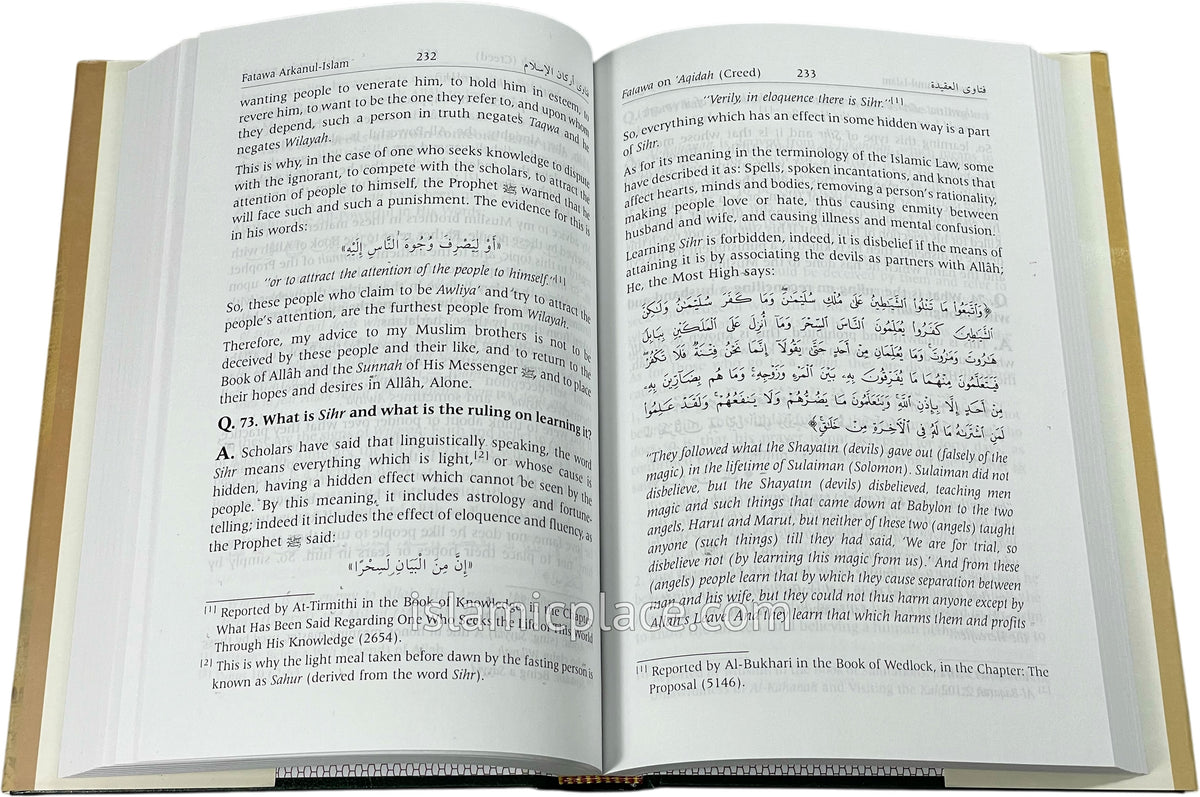 Fatawa Arkanul-Islam 232 فتاوى أركان الإسلام
wanting people to venerate him, to hold him in esteem, to
revere him, to want to be the one they refer to, and upon whom
they depend, such a person in truth negates Taqwa and he
negates Wilayah.
This is why, in the case of one who seeks knowledge to dispute
with the ignorant, to compete with the scholars, to attract the
attention of people to himself, the Prophet ﷺ warned that he
will face such and such a punishment. The evidence for this is
in his words:
«أَوْ لِيَصْرِفَ وُجُوهَ النَّاسِ إِلَيْهِ»
"or to attract the attention of the people to himself."[1]
So, these people who claim to be Awliya' and try to attract the
people's attention, are the furthest people from Wilayah.
Therefore, my advice to my Muslim brothers is not to be
deceived by these people and their like, and to return to the
Book of Allâh and the Sunnah of His Messenger ﷺ, and to place
their hopes and desires in Allâh, Alone.
Q. 73. What is Sihr and what is the ruling on learning it?
A. Scholars have said that linguistically speaking, the word
Sihr means everything which is light,[2] or whose cause is
hidden, having a hidden effect which cannot be seen by the
people. By this meaning, it includes astrology and fortune-
telling; indeed it includes the effect of eloquence and fluency, as
the Prophet ﷺ said:
«إِنَّ مِنَ الْبَيَانِ لَسِحْرًا»
[1] Reported by At-Tirmithi in the Book of Knowledge, in the Chapter:
What Has Been Said Regarding One Who Seeks the Life of This World
Through His Knowledge (2654).
[2] This is why the light meal taken before dawn by the fasting person is
known as Sahur (derived from the word Sihr).
Fatawa on 'Aqidah (Creed) 233 فتاوى العقيدة
"Verily, in eloquence there is Sihr."[1]
So, everything which has an effect in some hidden way is a part
of Sihr.
As for its meaning in the terminology of the Islamic Law, some
have described it as: Spells, spoken incantations, and knots that
affect hearts, minds and bodies, removing a person's rationality,
making people love or hate, thus causing enmity between
husband and wife, and causing illness and mental confusion.
Learning Sihr is forbidden, indeed, it is disbelief if the means of
attaining it is by associating the devils as partners with Allâh;
He, the Most High says:
﴿وَاتَّبَعُوا مَا تَتْلُوا الشَّيَاطِينُ عَلَىٰ مُلْكِ سُلَيْمَانَ وَمَا كَفَرَ سُلَيْمَانُ وَلَٰكِنَّ
الشَّيَاطِينَ كَفَرُوا يُعَلِّمُونَ النَّاسَ السِّحْرَ وَمَا أُنزِلَ عَلَى الْمَلَكَيْنِ بِبَابِلَ
هَارُوتَ وَمَارُوتَ وَمَا يُعَلِّمَانِ مِنْ أَحَدٍ حَتَّىٰ يَقُولَا إِنَّمَا نَحْنُ فِتْنَةٌ فَلَا تَكْفُرْ
فَيَتَعَلَّمُونَ مِنْهُمَا مَا يُفَرِّقُونَ بِهِ بَيْنَ الْمَرْءِ وَزَوْجِهِ وَمَا هُم بِضَارِّينَ بِهِ
مِنْ أَحَدٍ إِلَّا بِإِذْنِ اللَّهِ وَيَتَعَلَّمُونَ مَا يَضُرُّهُمْ وَلَا يَنفَعُهُمْ وَلَقَدْ عَلِمُوا
لَمَنِ اشْتَرَاهُ مَا لَهُ فِي الْآخِرَةِ مِنْ خَلَاقٍ﴾
"They followed what the Shayatın (devils) gave out (falsely of the
magic) in the lifetime of Sulaiman (Solomon). Sulaiman did not
disbelieve, but the Shayatın (devils) disbelieved, teaching men
magic and such things that came down at Babylon to the two
angels, Harut and Marut, but neither of these two (angels) taught
anyone (such things) till they had said, 'We are for trial, so
disbelieve not (by learning this magic from us).' And from these
(angels) people learn that by which they cause separation between
man and his wife, but they could not thus harm anyone except by
Allah's Leave. And they learn that which harms them and profits
[1] Reported by Al-Bukhari in the Book of Wedlock, in the Chapter: The
Proposal (5146).
islamicplace.com